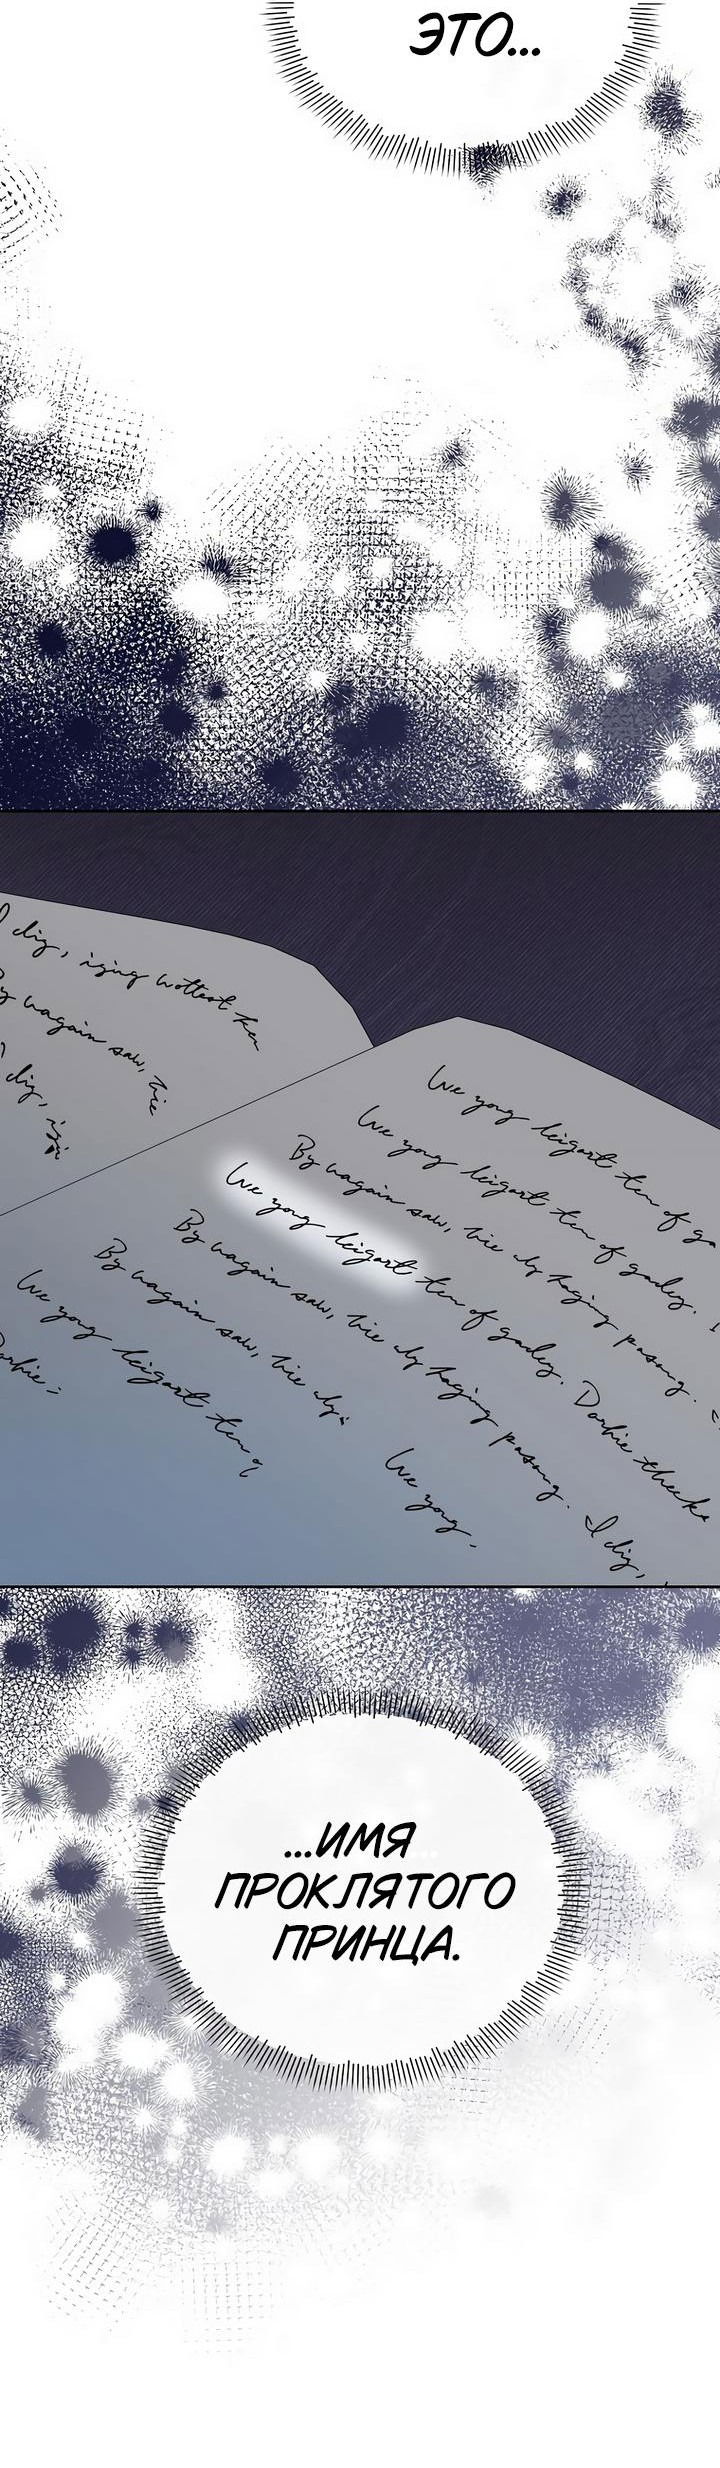 ЭТО...
I dig, izing wottest ten
By wagain saw, vie
I dig,
We yong keigart ten of ga
We yong keigart ten of gadey.
By wagain saw, vie dy haging pasong.
We yong keigart ten of gadey. Darhie theeka
By wagain saw, vie dy haging pasong. I dig,
By wagain saw, vie dy.
We yong.
We yong keigart ten
Darhie
...ИМЯ
ПРОКЛЯТОГО
ПРИНЦА.